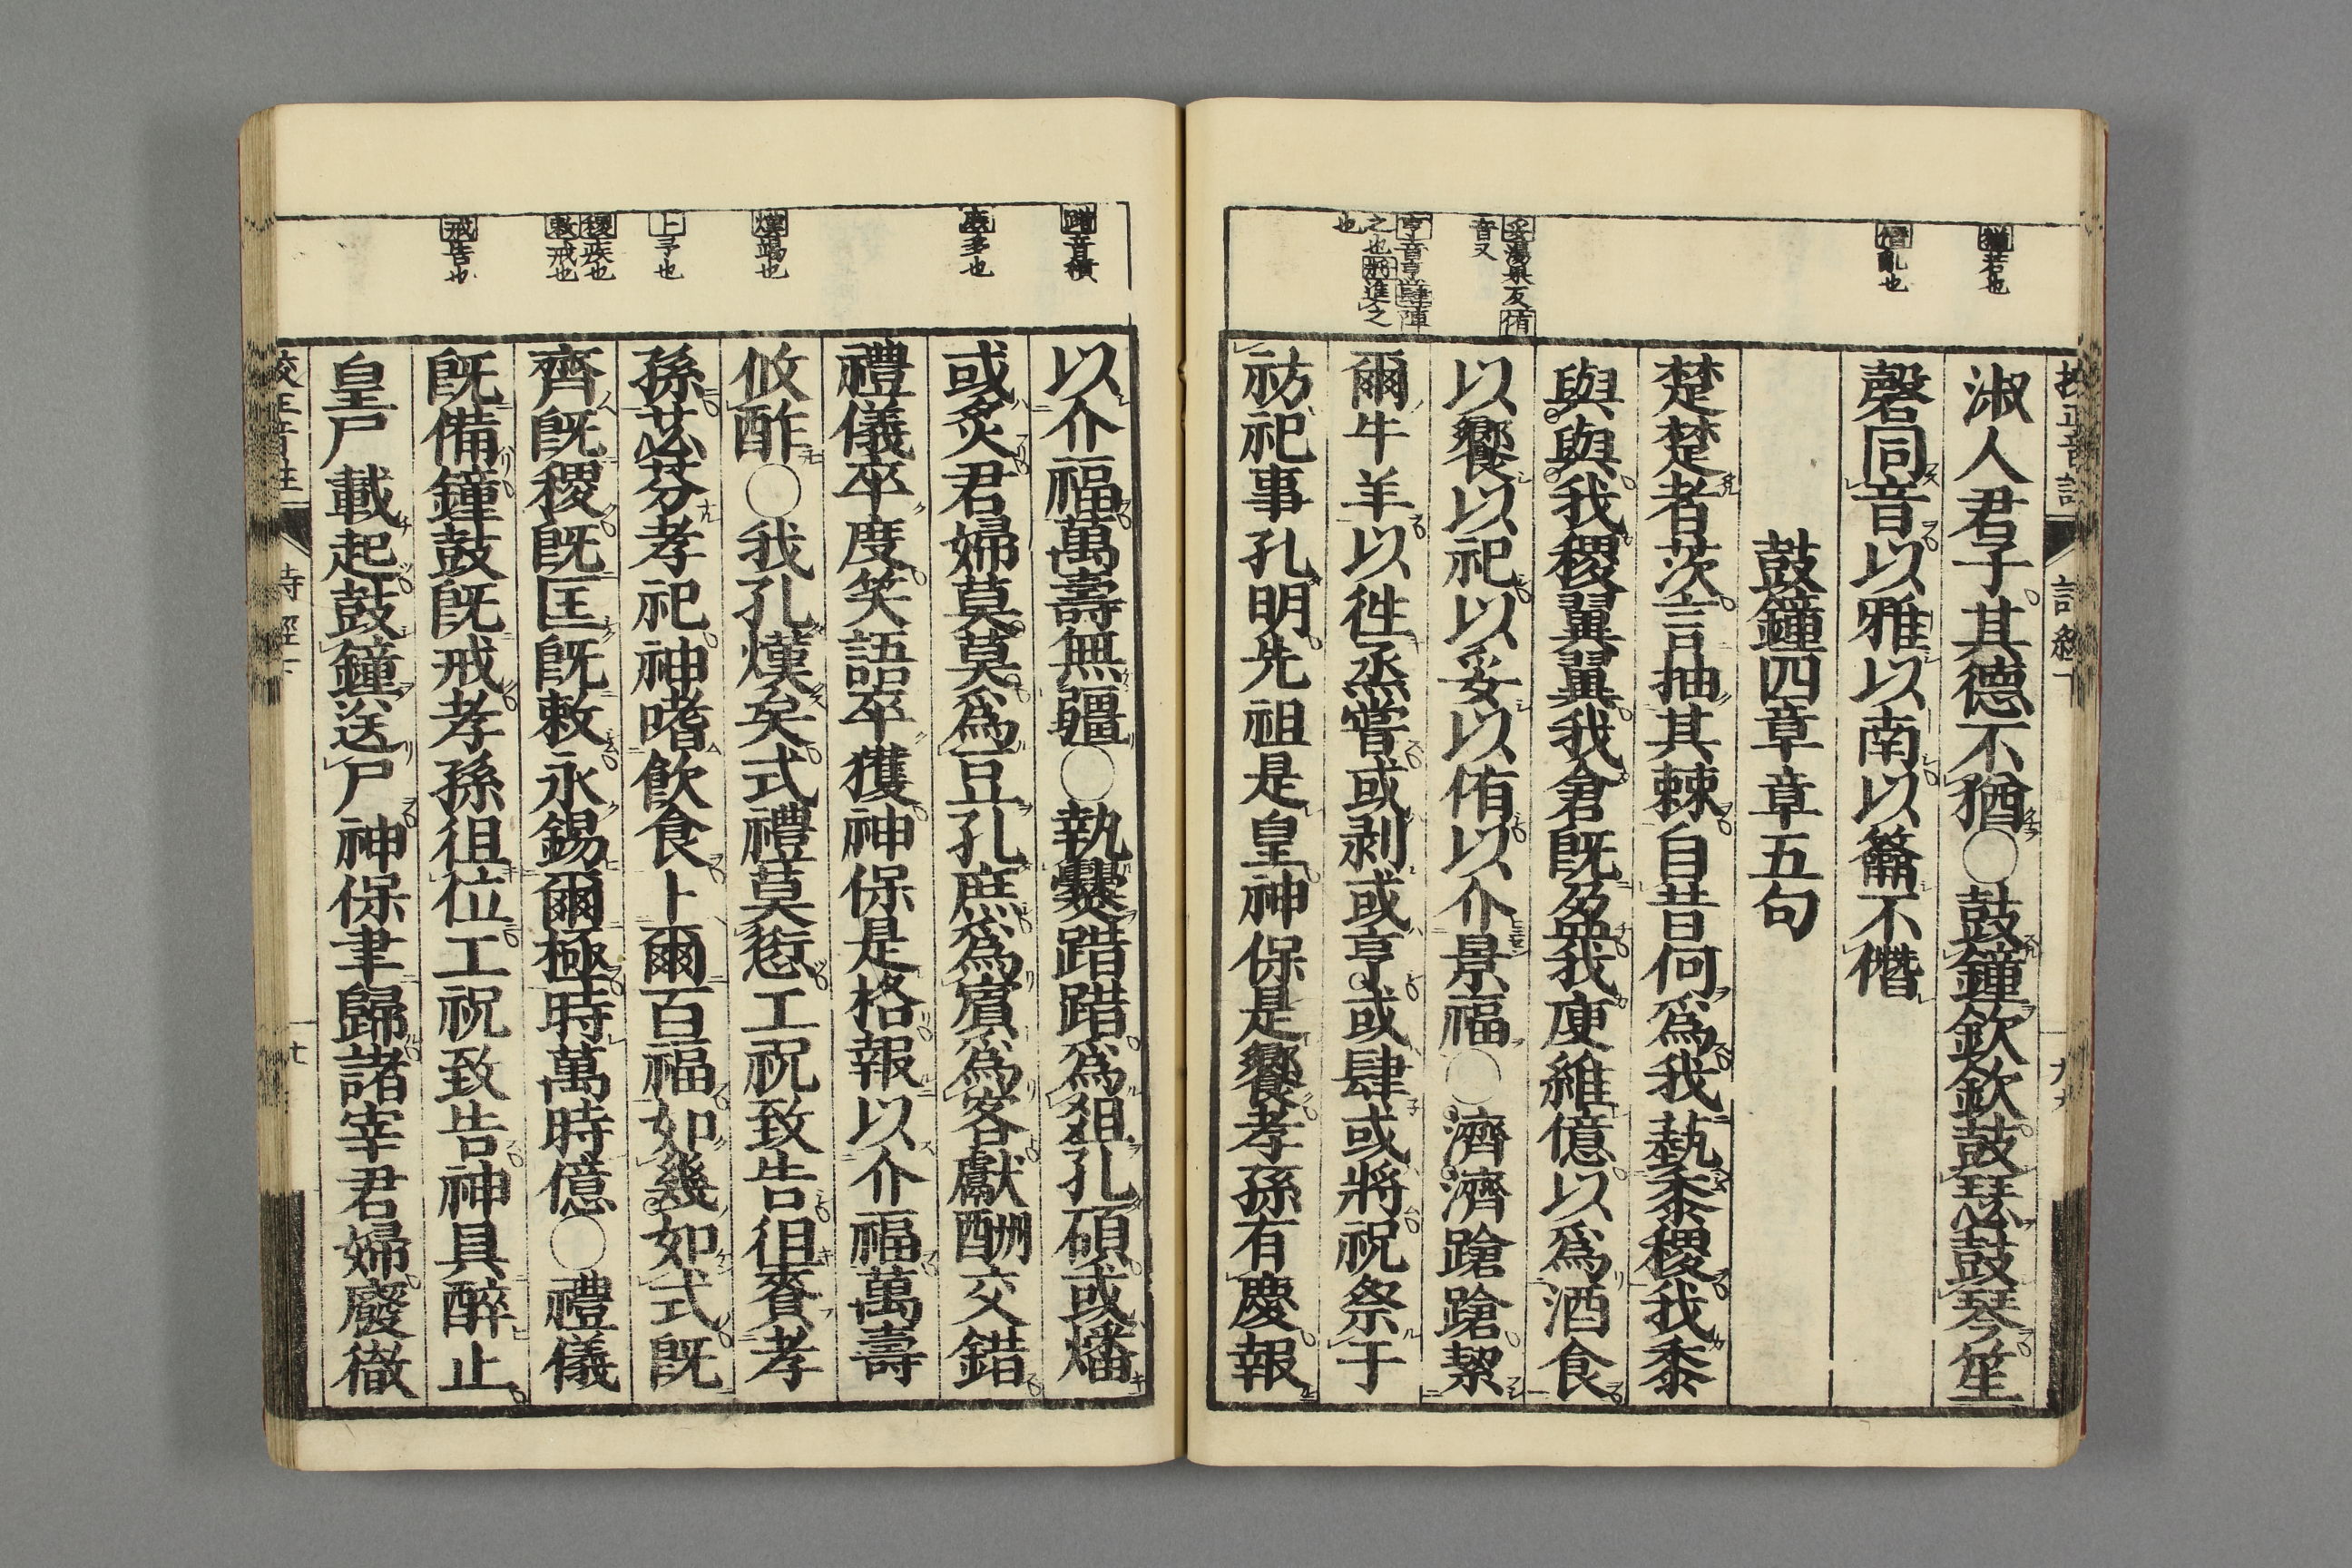 猶若也
僭亂也
妥湯果反侑
音又
亨音烹肆陳
之也將進之
也
淑人君子其德不猶○鼓鐘欽欽鼓瑟鼓琴笙
磬同音以雅以南以籥不僭
鼓鐘四章章五句
楚楚者茨言抽其棘自昔何爲我蓺黍稷我黍
與與我稷翼翼我倉既盈我庾維億以爲酒食
以饗以祀以妥以侑以介景福○濟濟蹌蹌絜
爾牛羊以徃烝嘗或剥或亨或肆或將祝祭于
祊祀事孔明先祖是皇神保是饗孝孫有慶報
踖音積
庶多也
熯竭也
卜予也
稷疾也
敕戒也
戒告也
以介福萬壽無疆○執爨踖踖爲俎孔碩或燔
或炙君婦莫莫爲豆孔庶爲賓爲客獻酬交錯
禮儀卒度笑語卒獲神保是格報以介福萬壽
攸酢○我孔熯矣式禮莫愆工祝致告徂賚孝
孫苾芬孝祀神嗜飲食卜爾百福如幾如式既
齊既稷既匡既敕永錫爾極時萬時億○禮儀
既備鐘鼓既戒孝孫徂位工祝致告神具醉止
皇尸載起鼓鐘送尸神保聿歸諸宰君婦廢徹